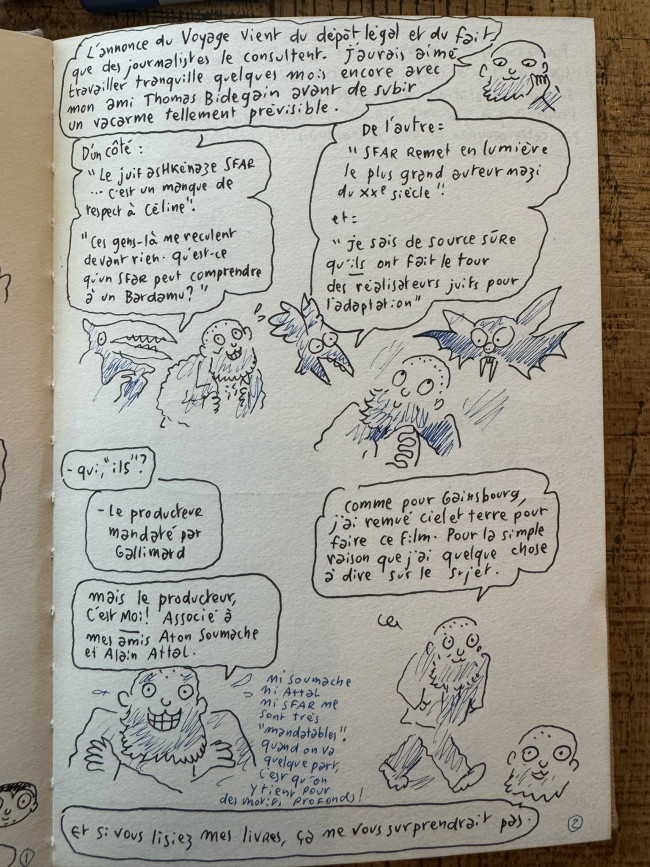 L'annonce du Voyage vient du dépot légal et du fait
que des journalistes le consultent. J'aurais aimé
travailler tranquille quelques mois encore avec
mon ami Thomas Bidegain avant de subir
un vacarme tellement prévisible.
D'un côté :
"Le juif ashkénaze SFAR
... c'est un manque de
respect à Céline".
"Ces gens-là ne reculent
devant rien. qu'est-ce
qu'un SFAR peut comprendre
à un Bardamu ?"
De l'autre :
"SFAR remet en lumière
le plus grand auteur nazi
du XXe siècle".
et :
"je sais de source sûre
qu'ils ont fait le tour
des réalisateurs juifs pour
l'adaptation"
- qui, "ils" ?
- Le producteur
mandaté par
Gallimard
mais le producteur,
c'est moi ! Associé à
mes amis Aton Soumache
et Alain Attal.
ni Soumache
ni Attal
ni SFAR ne
sont très
"mandatables".
quand on va
quelque part,
c'est qu'on
y tient pour
des motifs profonds !
comme pour Gainsbourg,
j'ai remué ciel et terre pour
faire ce film. Pour la simple
raison que j'ai quelque chose
à dire sur le sujet.
et si vous lisiez mes livres, ça ne vous surprendrait pas.
2
1